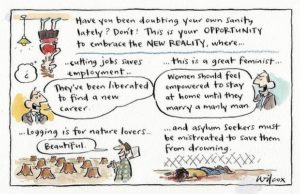 Have you been doubting your own sanity
lately? Don't! This is your OPPORTUNITY
to embrace the NEW REALITY, where...
...cutting jobs saves
employment...
They've been liberated
to find a new
career.
...this is a great feminist...
Women should feel
empowered to stay
at home until they
marry a manly man.
...logging is for nature lovers...
Beautiful.
...and asylum seekers must
be mistreated to save them
from drowning.
Wilcox